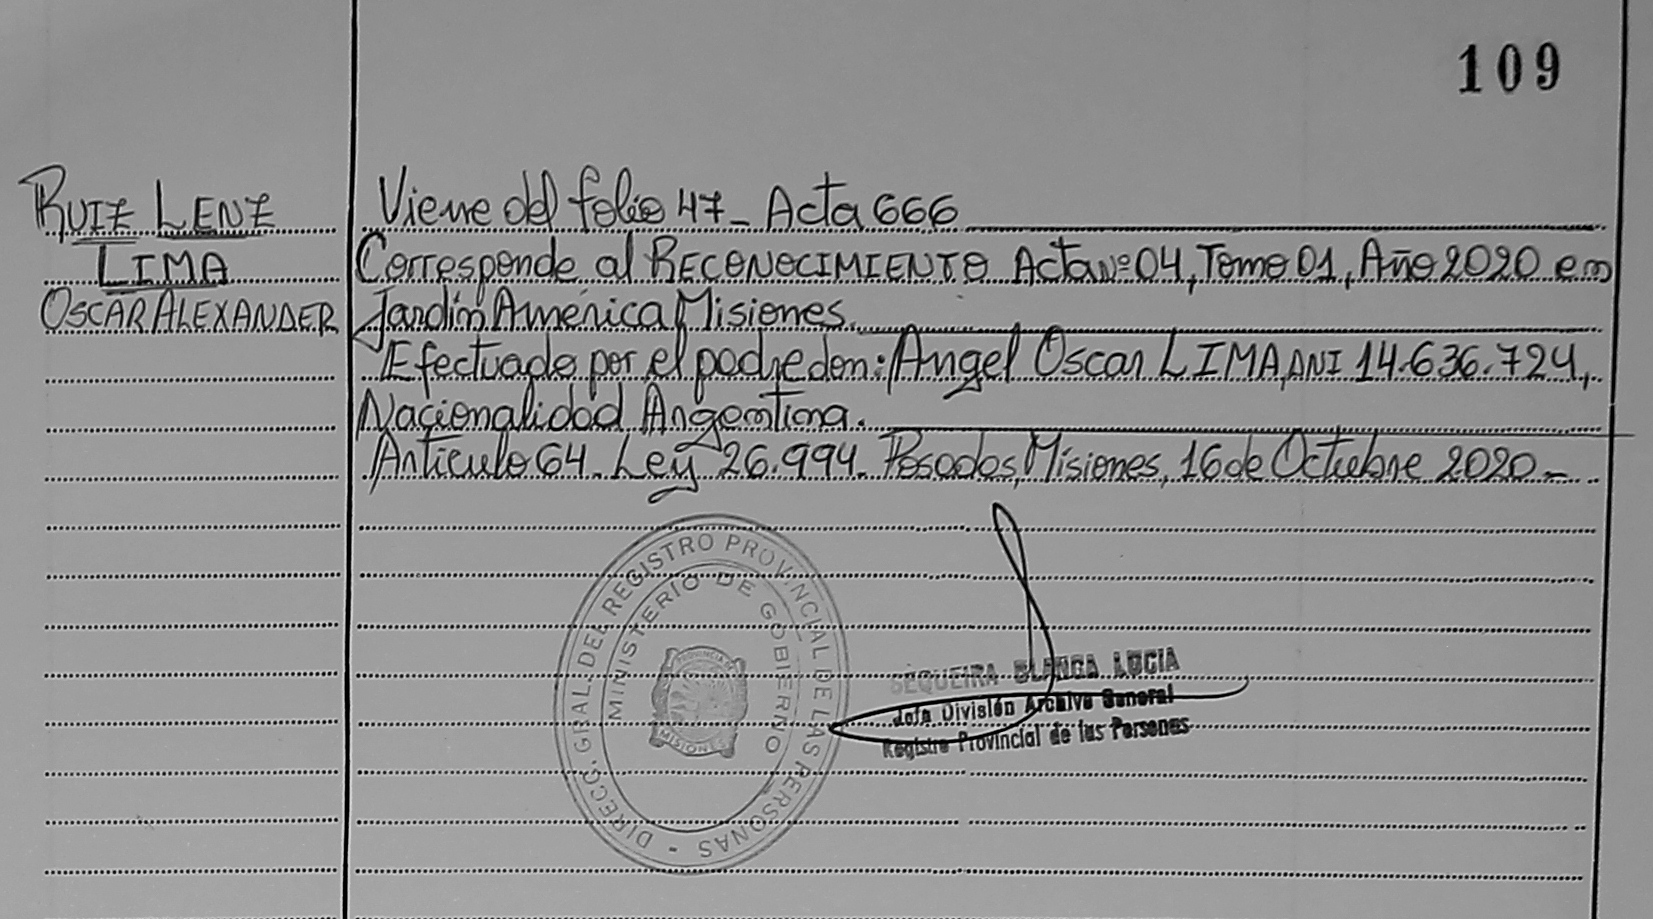 109
RUIZ LENZ
LIMA
OSCAR ALEXANDER
Viene del folio 47- Acta 666
Corresponde al RECONOCIMIENTO Acta Nº 04, Tomo 01, Año 2020 en
Jardín América Misiones.
Efectuado por el padre don: Angel Oscar LIMA, DNI 14.636.724,
Nacionalidad Argentina.
Artículo 64. Ley 26.994. Posadas, Misiones, 16 de Octubre 2020-
DIRECC. GRAL. DEL REGISTRO PROVINCIAL DE LAS PERSONAS -
MINISTERIO DE GOBIERNO
PROVINCIA DE
MISIONES
SEQUEIRA BLANCA LUCIA
Jefa División Archivo General
Registro Provincial de las Personas